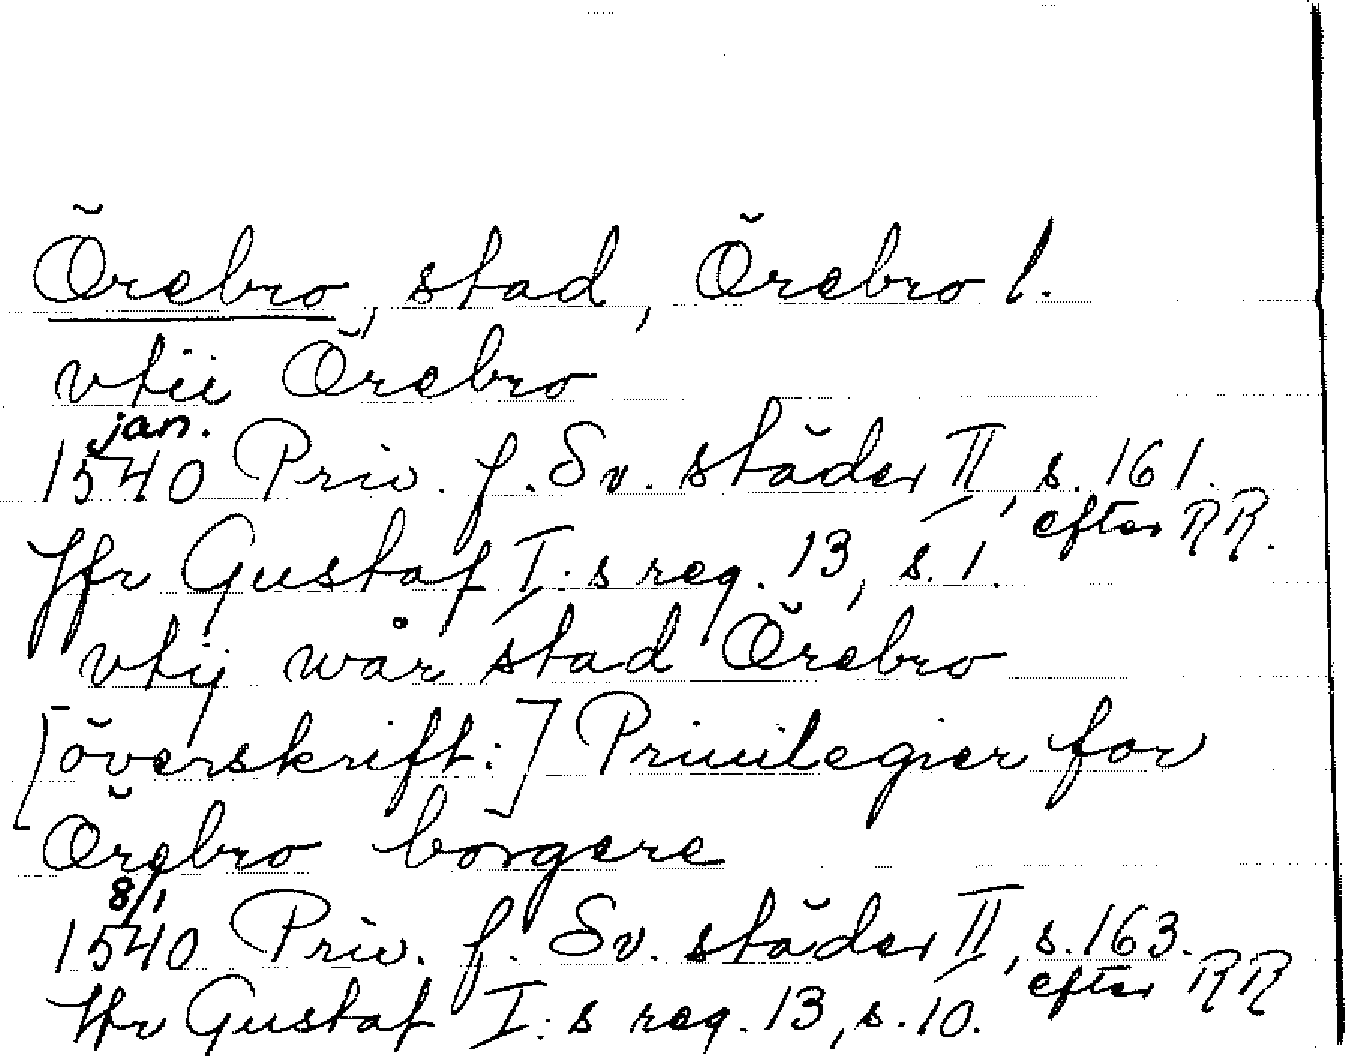 Örebro, stad, Örebro l.
vtii Örebro
jan.
1540 Priv. f. Sv. städer II, s. 161.
efter RR.
Jfr Gustaf I:s reg. 13, s. 1.
vtij wår stad Örebro
[överskrift:] Priuilegier for
Örebro borgere
8/1
1540 Priv. f. Sv. städer II, s. 163.
efter RR
Jfr Gustaf I:s reg. 13, s. 10.